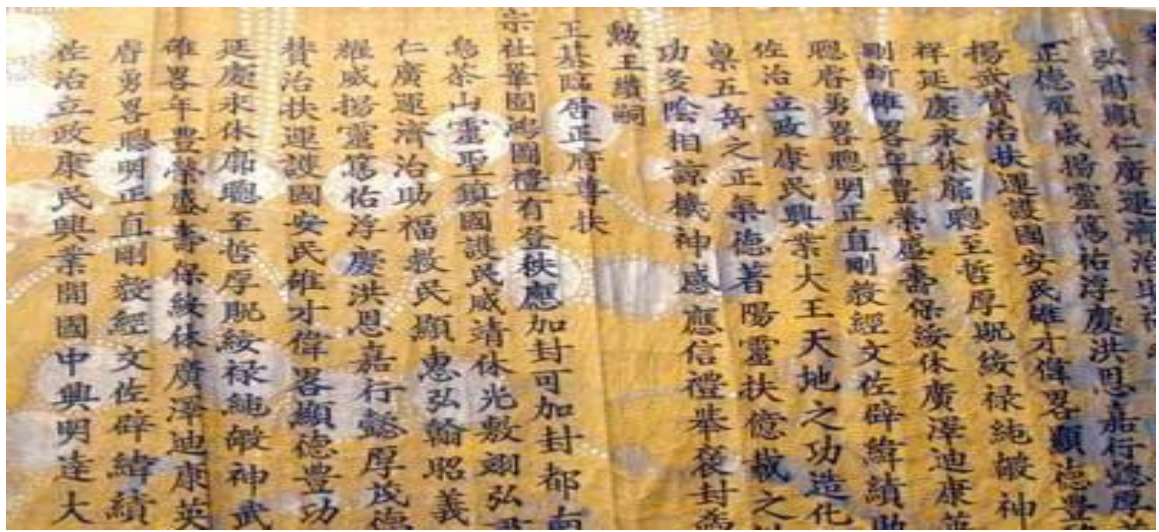 弘翰顯仁廣運濟治助福
正德耀威揚靈篤祐浮慶洪恩嘉行懿厚
揚武贊治扶運護國安民雄才偉畧顯德豊
祥延慶永休廓聰至哲厚貺綏禄純嘏神
剛断雄畧年豊榮盛壽保綏休廣澤迪康英
聰睿勇畧聰明正直剛毅經文佐辟緯績助
佐治立政康民興業大王天地之功造化
稟五岳之正氣德著陽靈扶億載之
功多陰相諒機神感應信禮舉褒封爲
勲王纘嗣
王基臨居正府尊扶
宗社鞏固鴻圖禮有登秩應加封可加封都南
烏茶山靈聖鎮國護民威清休光敷翊弘
仁廣運濟治助福救民顯惠弘翰昭義
耀威揚靈篤佑浮慶洪恩嘉行懿厚茂德
賛治扶運護國安民雄才偉畧顯德豊功
延慶永休廓聰至哲厚貺綏禄純嘏神武
雄畧年豊榮盛壽保綏休廣澤迪康英
睿勇畧聰明正直剛毅經文佐辟緯績
佐治立政康民興業開國中興明達大